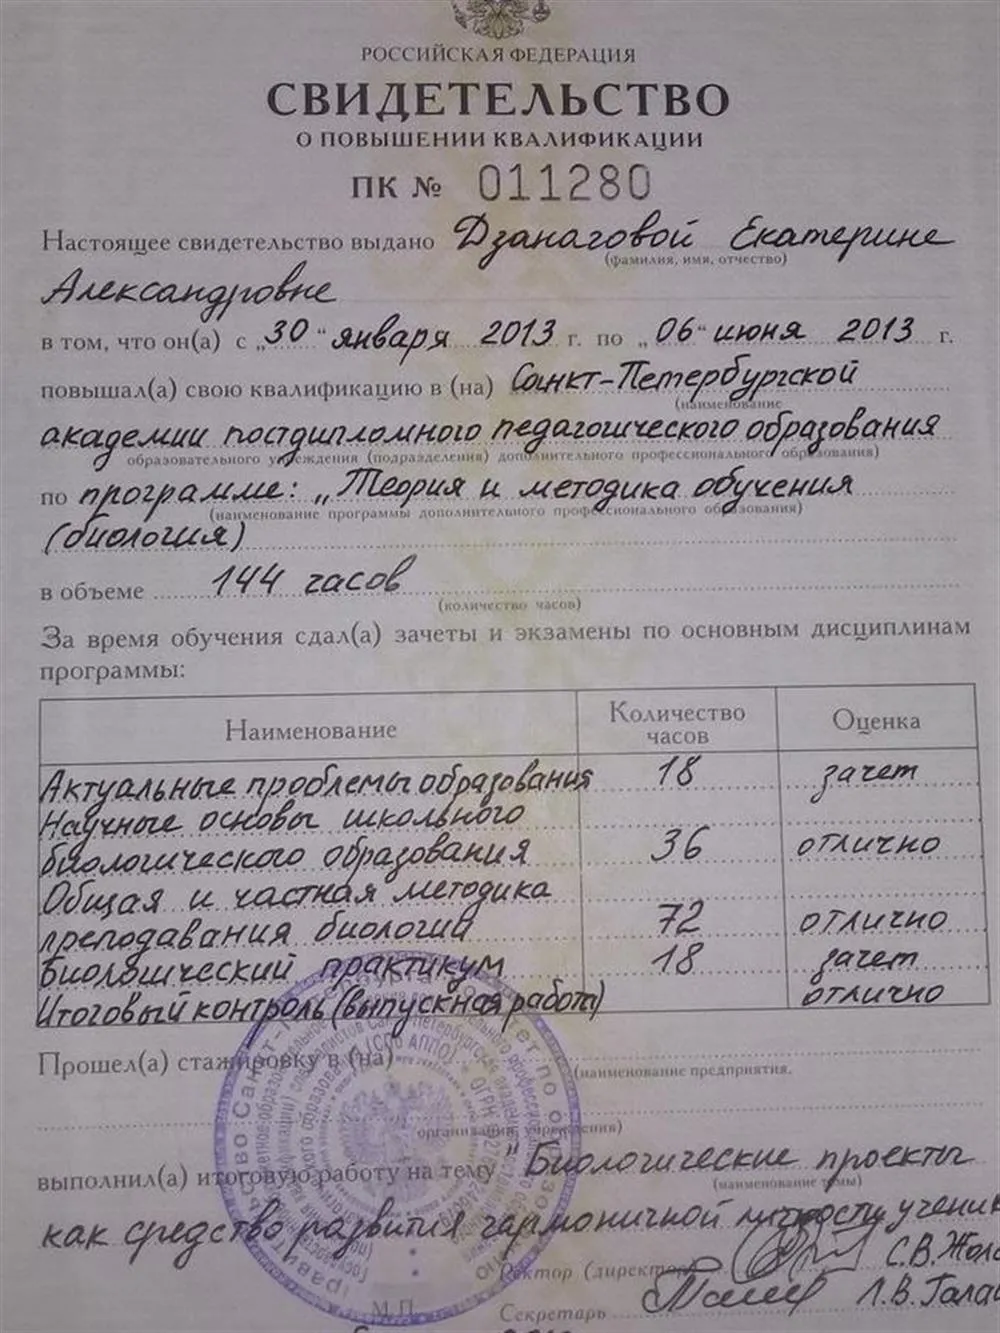 РОССИЙСКАЯ ФЕДЕРАЦИЯ
СВИДЕТЕЛЬСТВО
О ПОВЫШЕНИИ КВАЛИФИКАЦИИ
ПК № 011280
Настоящее свидетельство выдано Дзанаговой Екатерине
(фамилия, имя, отчество)
Александровне
в том, что он(а) с „30“ января 2013 г. по „06“ июня 2013 г.
повышал(а) свою квалификацию в (на) Санкт-Петербургской
(наименование
академии постдипломного педагогического образования
образовательного учреждения (подразделения) дополнительного профессионального образования)
по программе: „Теория и методика обучения
(наименование программы дополнительного профессионального образования)
(биология)
в объеме 144 часов
(количество часов)
За время обучения сдал(а) зачеты и экзамены по основным дисциплинам
программы:
Наименование Количество часов Оценка
Актуальные проблемы образования 18 зачет
Научные основы школьного
биологического образования 36 отлично
Общая и частная методика
преподавания биологии 72 отлично
Биологический практикум 18 зачет
Итоговый контроль (выпускная работа) отлично
Прошел(а) стажировку в (на)
(наименование предприятия,
организации, учреждения)
выполнил(а) итоговую работу на тему "Биологические проекты
(наименование темы)
как средство развития гармоничной личности ученик
Ректор (директор) С.В. Жол
М.П. Секретарь Л.В. Гала